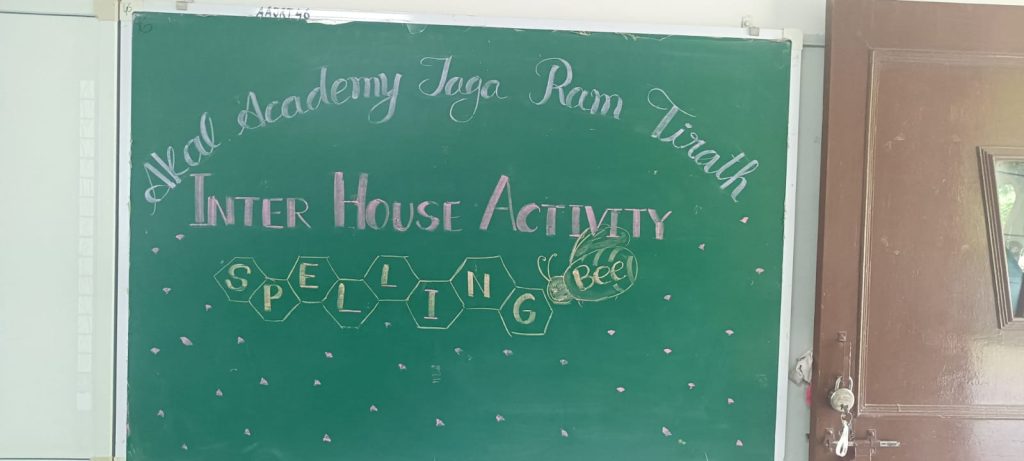 Akal Academy Jaga Ram Tirath
INTER HOUSE ACTIVITY
SPELLING BEE